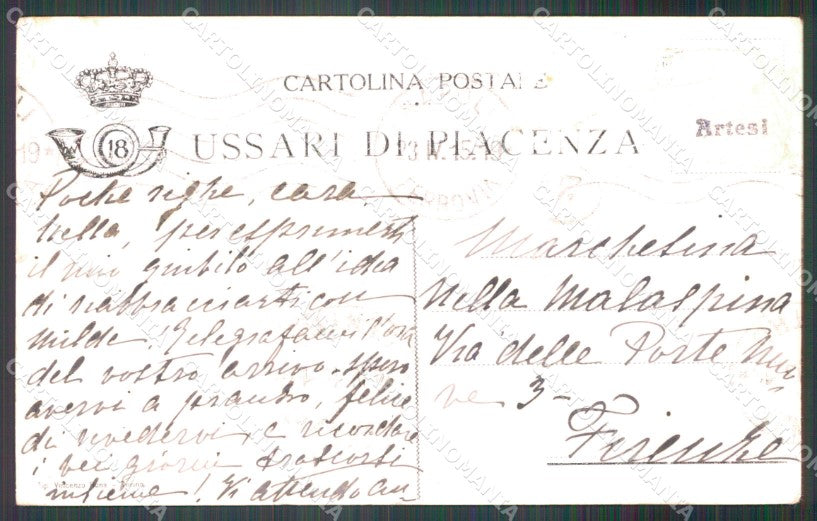 CARTOLINA POSTALE
Artesi
18 USSARI DI PIACENZA
Poche righe, cara
Nella, per esprimerti
il mio giubilo all'idea
di riabbracciarti con
Milde. Telegrafatemi l'ora
del vostro arrivo. Spero
avervi a pranzo, felice
di rivedervi e ricordare
i bei giorni trascorsi
insieme! Vi attendo
Marchesina
Nella Malaspina
Via delle Porte Nuo-
ve 3-
Firenze
CARTOLINOMANIA